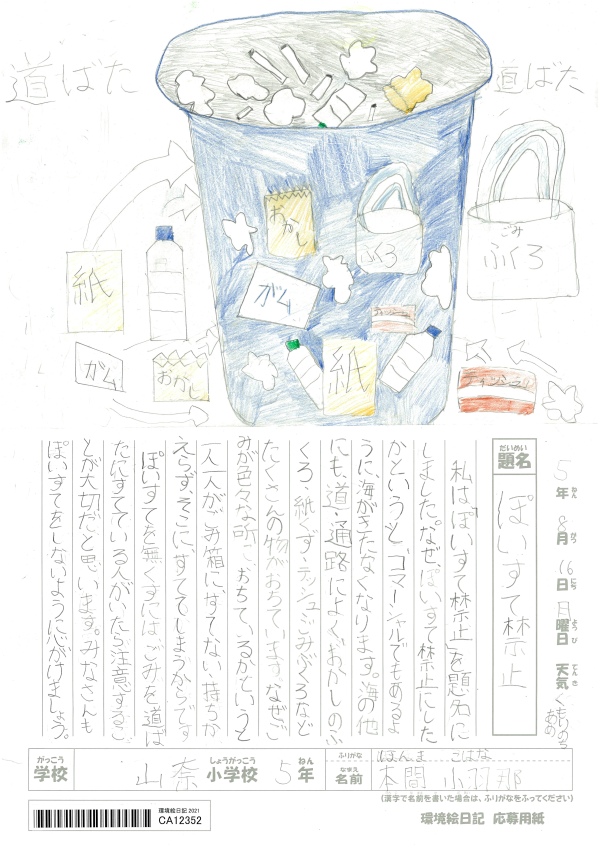 道ばた
道ばた
おかし
ふくろ
ごみ
ふくろ
紙
ガム
ティッシュ
紙
ガム
おかし
ティッシュ
5年 8月 16日 月曜日 天気 くもりのちあめ
ねん がつ にち ようび てんき
だいめい
題名
ぽいすて禁止
私は「ぽいすて禁止」を題名に
しました。なぜ、ぽいすて禁止にした
かというと、コマーシャルでもあるよ
うに、海がきたなくなります。海の他
にも、道・通路によくおかしのふ
くろ・紙くず・テッシュ・ごみぶくろなど
たくさんの物がおちています。なぜご
みが色々な所に、おちているかというと
一人一人が、ごみ箱に、すてない持ちか
えらず、そこに、すててしまうからです
ぽいすてを無くすには、ごみを道ば
たにすてている人がいたら注意するこ
とが大切だと思います。みなさんも
ぽいすてをしないように心がけましょう。
がっこう
学校
山奈
しょうがっこう
小学校
5年
ねん
ふりがな
ほんま こはな
なまえ
名前
本間 小羽那
(漢字で名前を書いた場合は、ふりがなをふってください)
環境絵日記 2021
CA12352
環境絵日記 応募用紙